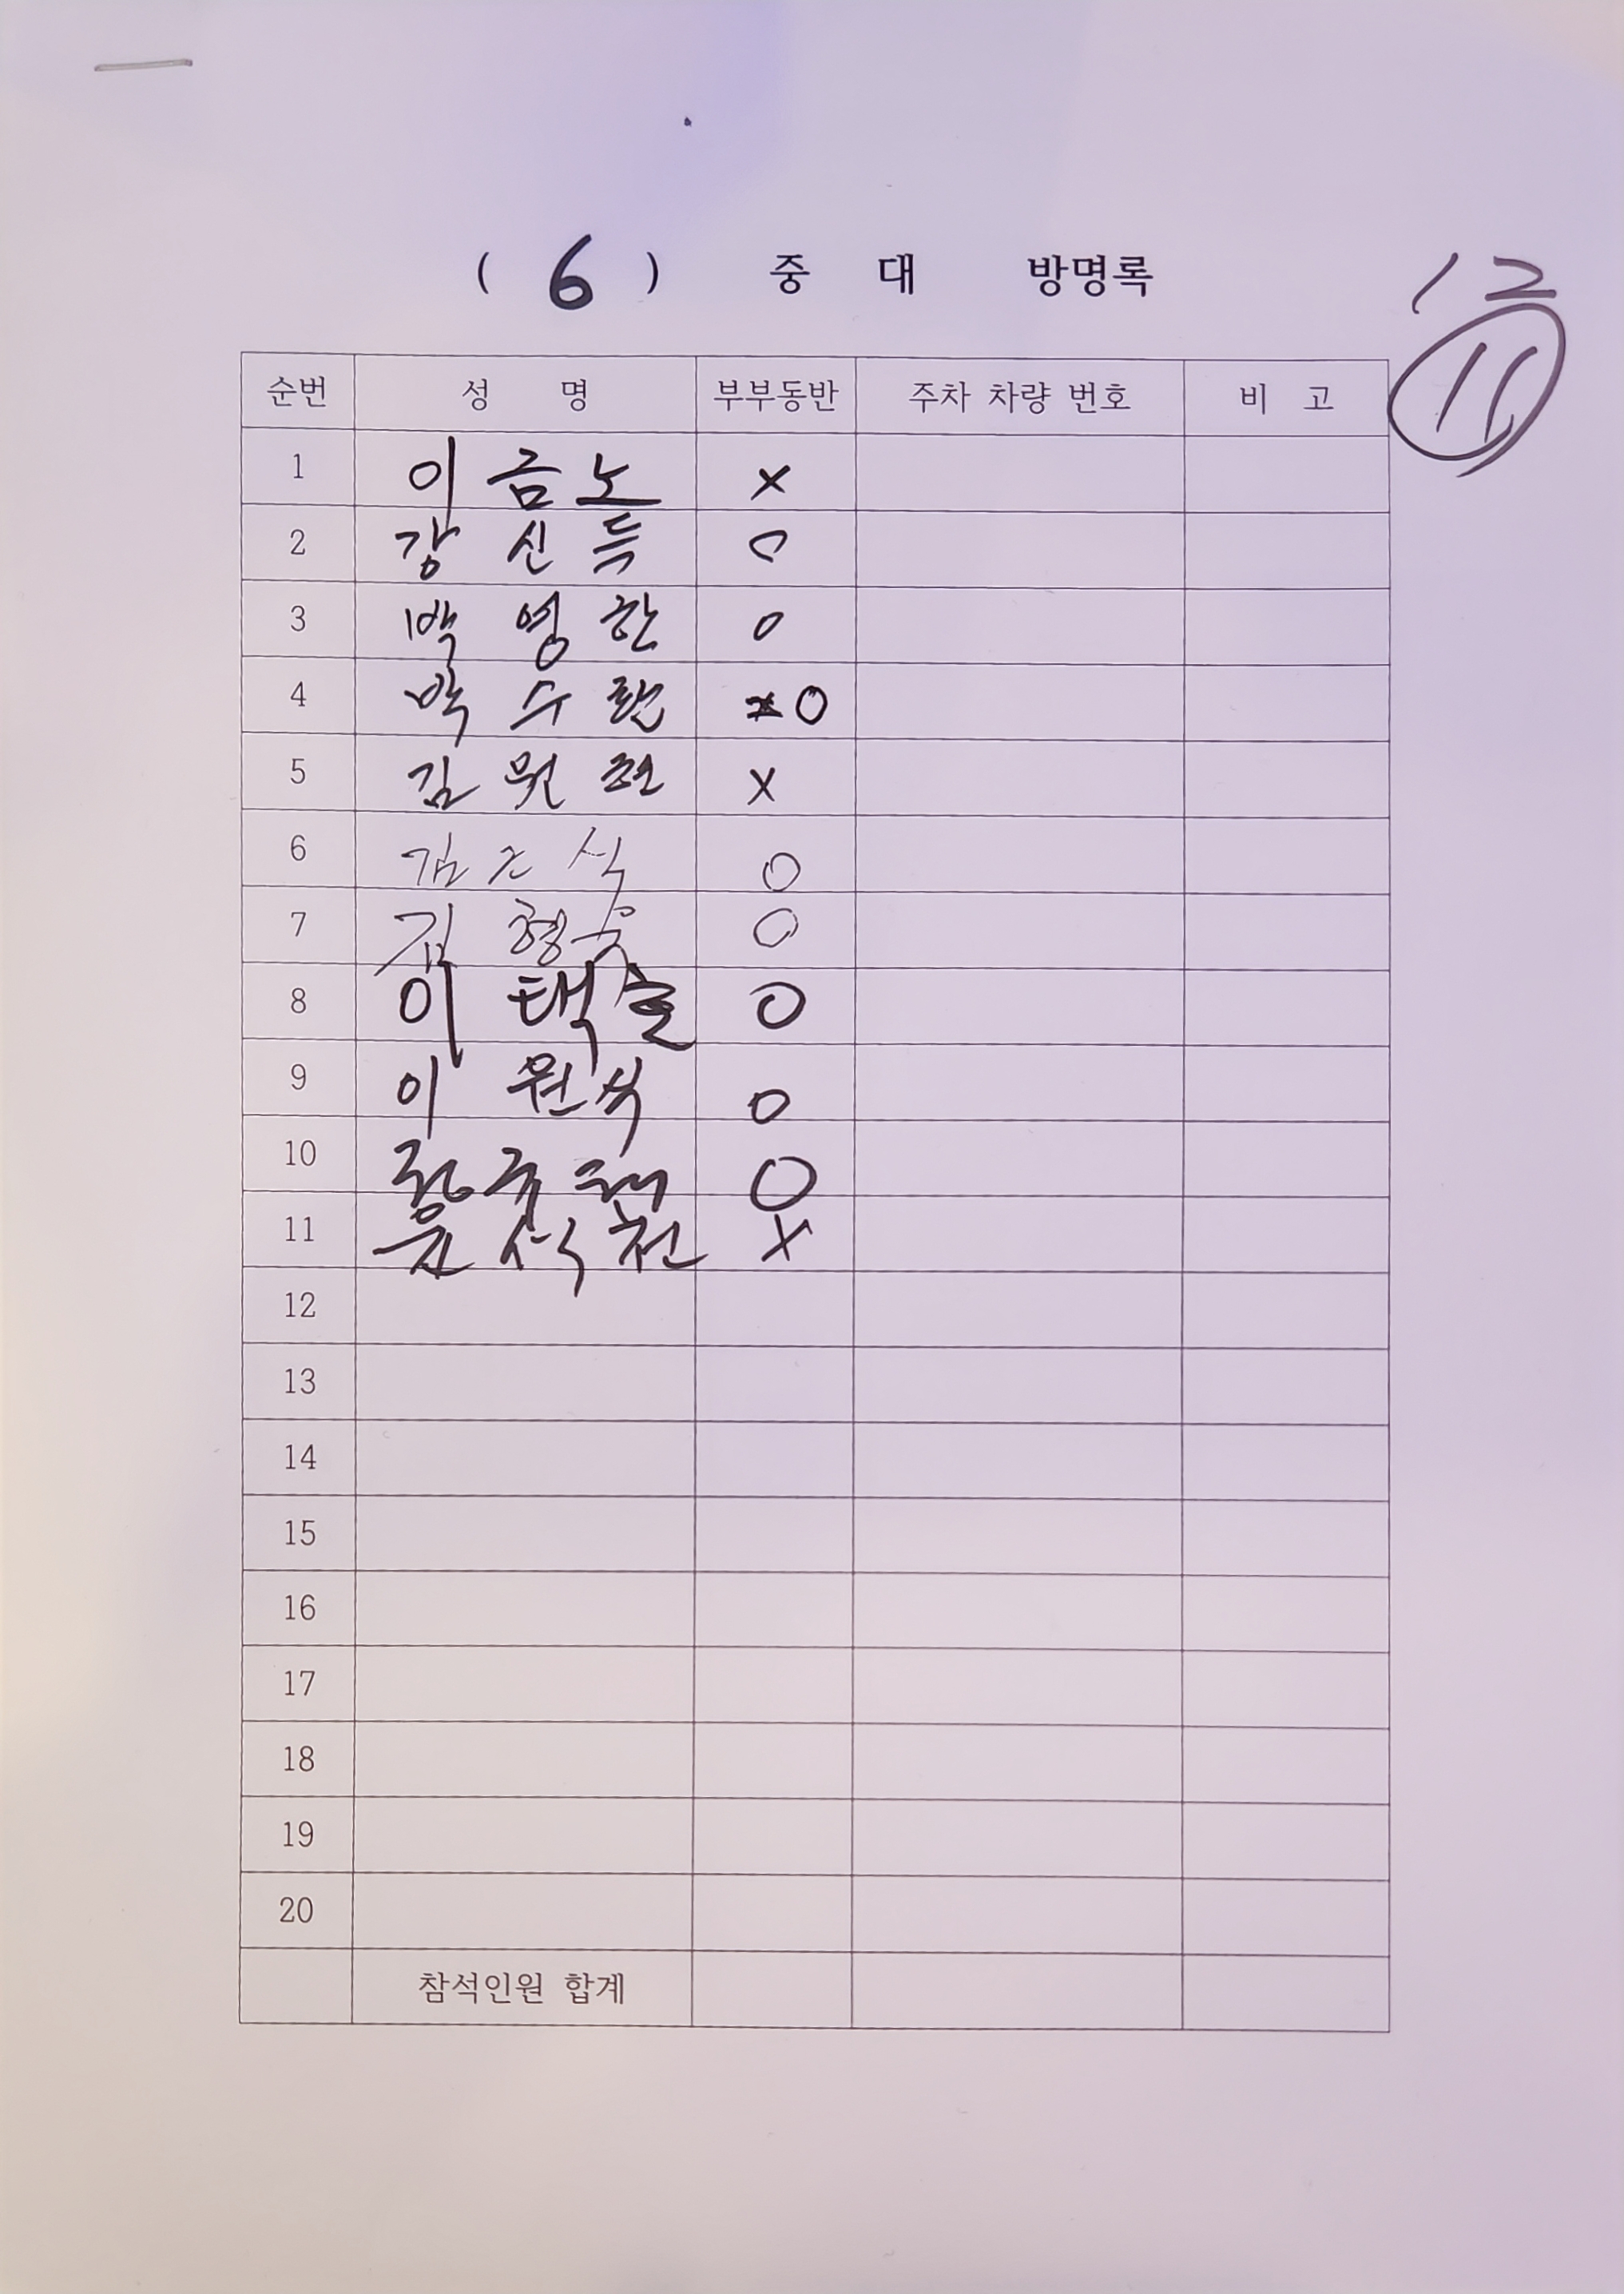 ( 6 ) 중 대 방명록
12
11
순번 성 명 부부동반 주차 차량 번호 비 고
1 이 금 노 X
2 강 신 득 O
3 백 영 한 O
4 박 수 란 O
5 김 원 현 X
6 김 근 식 O
7 김 형 욱 O
8 이 택 O
9 이 원 식 O
10 O
11 윤 석 천 X
12
13
14
15
16
17
18
19
20
참석인원 합계